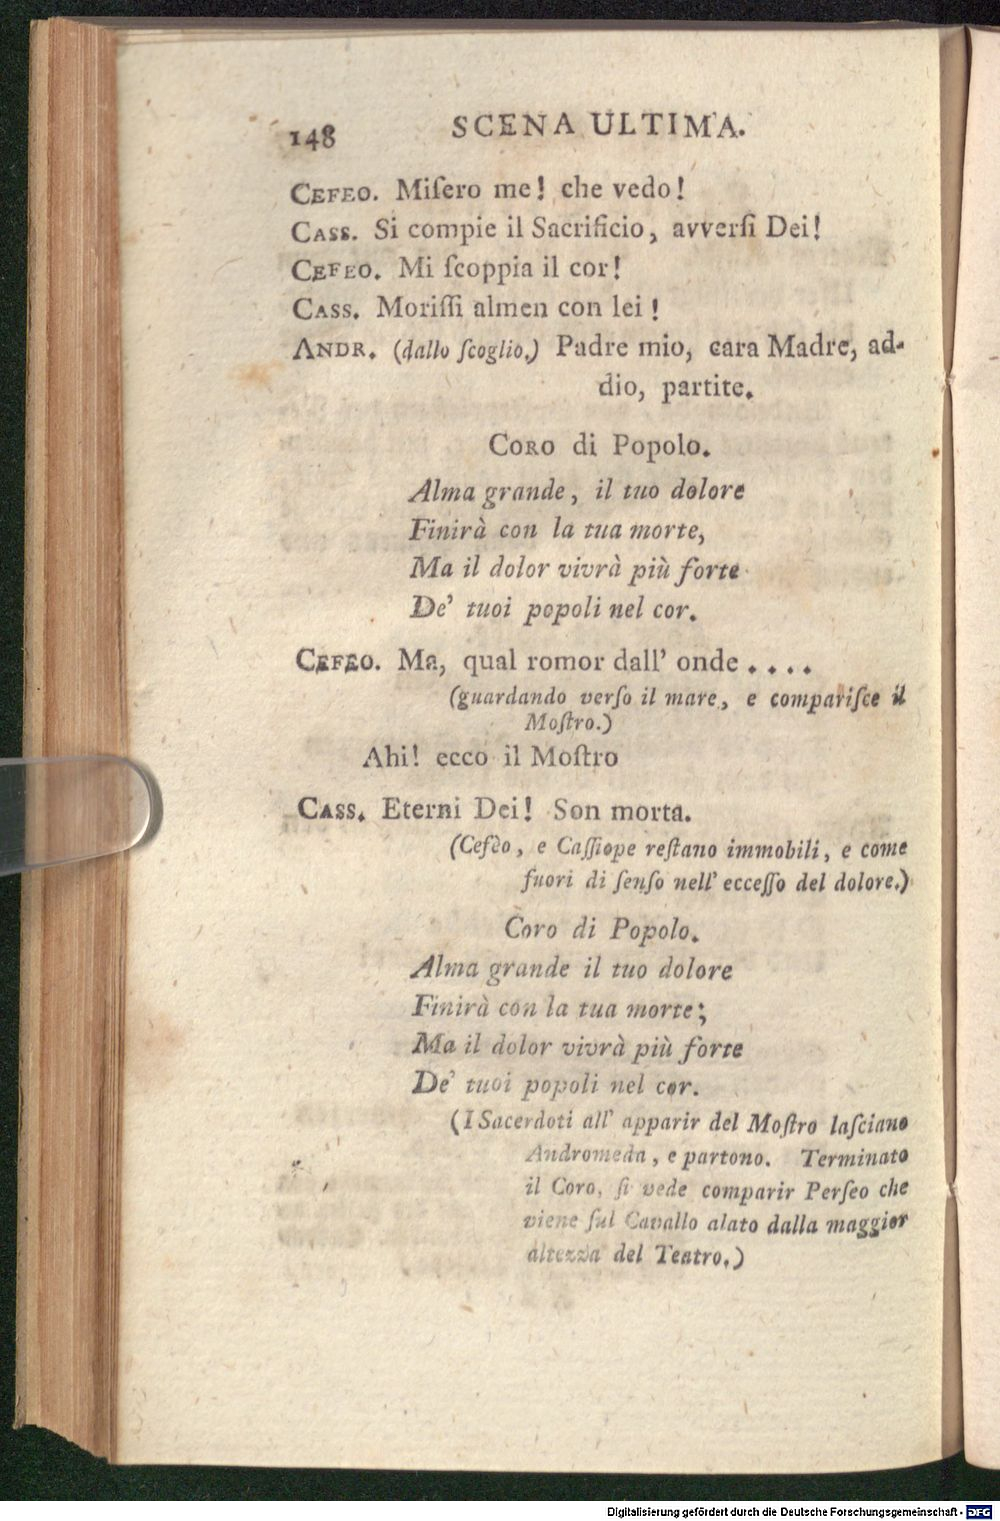 148 SCENA ULTIMA.
CEFEO. Miſero me! che vedo!
CASS. Si compie il Sacrificio, avverſi Dei!
CEFEO. Mi ſcoppia il cor!
CASS. Moriſſi almen con lei!
ANDR. (dallo ſcoglio.) Padre mio, cara Madre, ad-
dio, partite.
CORO di Popolo.
Alma grande, il tuo dolore
Finirà con la tua morte,
Ma il dolor vivrà più forte
De' tuoi popoli nel cor.
CEFEO. Ma, qual romor dall' onde . . . .
(guardando verſo il mare, e compariſce il
Moſtro.)
Ahi! ecco il Moſtro
CASS. Eterni Dei! Son morta.
(Cefèo, e Caſſiope reſtano immobili, e come
fuori di ſenſo nell' ecceſſo del dolore.)
Coro di Popolo.
Alma grande il tuo dolore
Finirà con la tua morte;
Ma il dolor vivrà più forte
De' tuoi popoli nel cor.
(I Sacerdoti all' apparir del Moſtro laſciano
Andromeda, e partono. Terminato
il Coro, ſi vede comparir Perſeo che
viene ſul Cavallo alato dalla maggior
altezza del Teatro.)
Digitalisierung gefördert durch die Deutsche Forschungsgemeinschaft - DFG